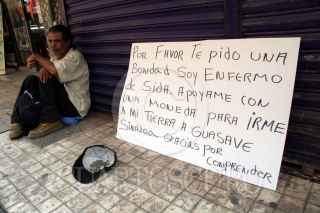 POR FAVOR TE PIDO UNA
BONDAD SOY ENFERMO
DE SIDA APOYAME CON
UNA MONEDA PARA IRME
A MI TIERRA A GUASAVE
SINALOA GRACIAS POR
COMPRENDER